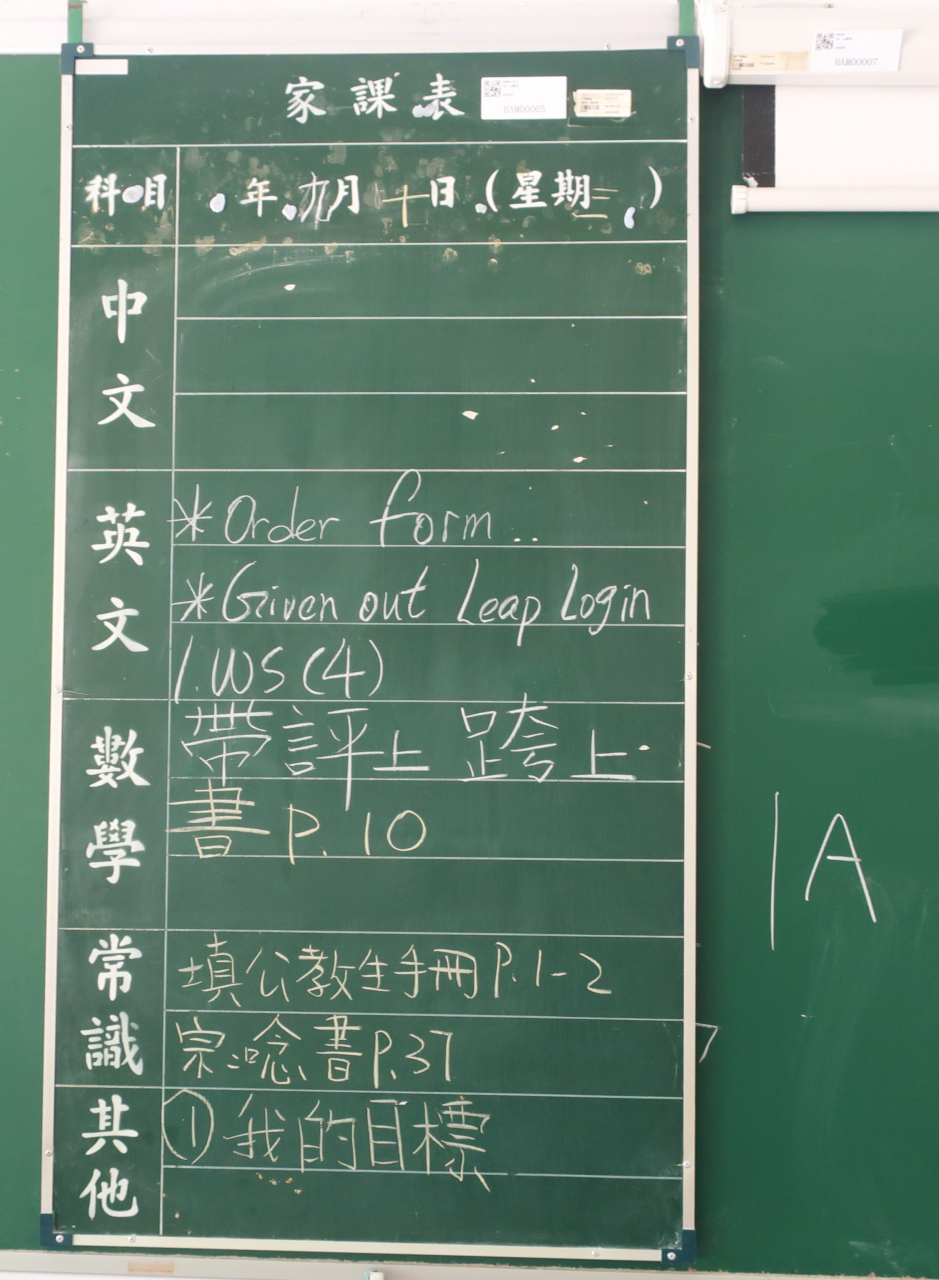 家課表
HAM00005
HAM00007
科目 年九月十日(星期三)
中文
英文
*Order form
*Given out Leap Login
1.WS(4)
數學
帶評上 跨上
書P.10
常識
填公教生手冊P.1-2
宗:唸書P.37
其他
①我的目標
1A